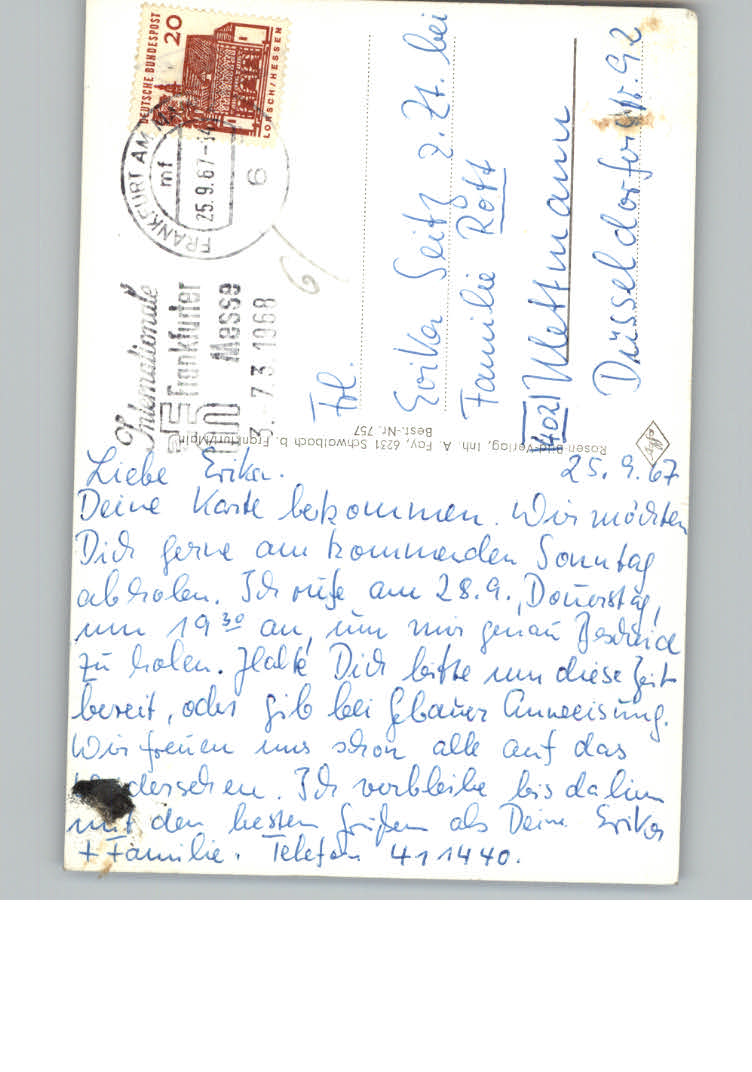 DEUTSCHE BUNDESPOST
20
LORSCH/HESSEN
FRANKFURT AM
mf
25.9.67-14
6
Internationale
Frankfurter
Messe
3.-7.3.1968
6
Frl.
Erika Seitz z.Zt. bei
Familie Rott
402 Mettmann
Düsseldorferstr. 92
Rosen-Bild-Verlag, Inh. A. Fay, 6231 Schwalbach b. Frankfurt/Main
Best.-Nr. 757
Liebe Erika. 25.9.67
Deine Karte bekommen. Wir möchten
Dich gerne am kommenden Sonntag
abholen. Ich rufe am 28.9., Donerstag,
um 19³⁰ an, um mir genau Bescheid
zu holen. Halte Dich bitte um diese Zeit
bereit, oder gib bei Gebauer Anweisung.
Wir freuen uns schon alle auf das
dersehen. Ich verbleibe bis dahin
mit den besten Grüßen als Deine Erika
+ Familie. Telefon 411440.